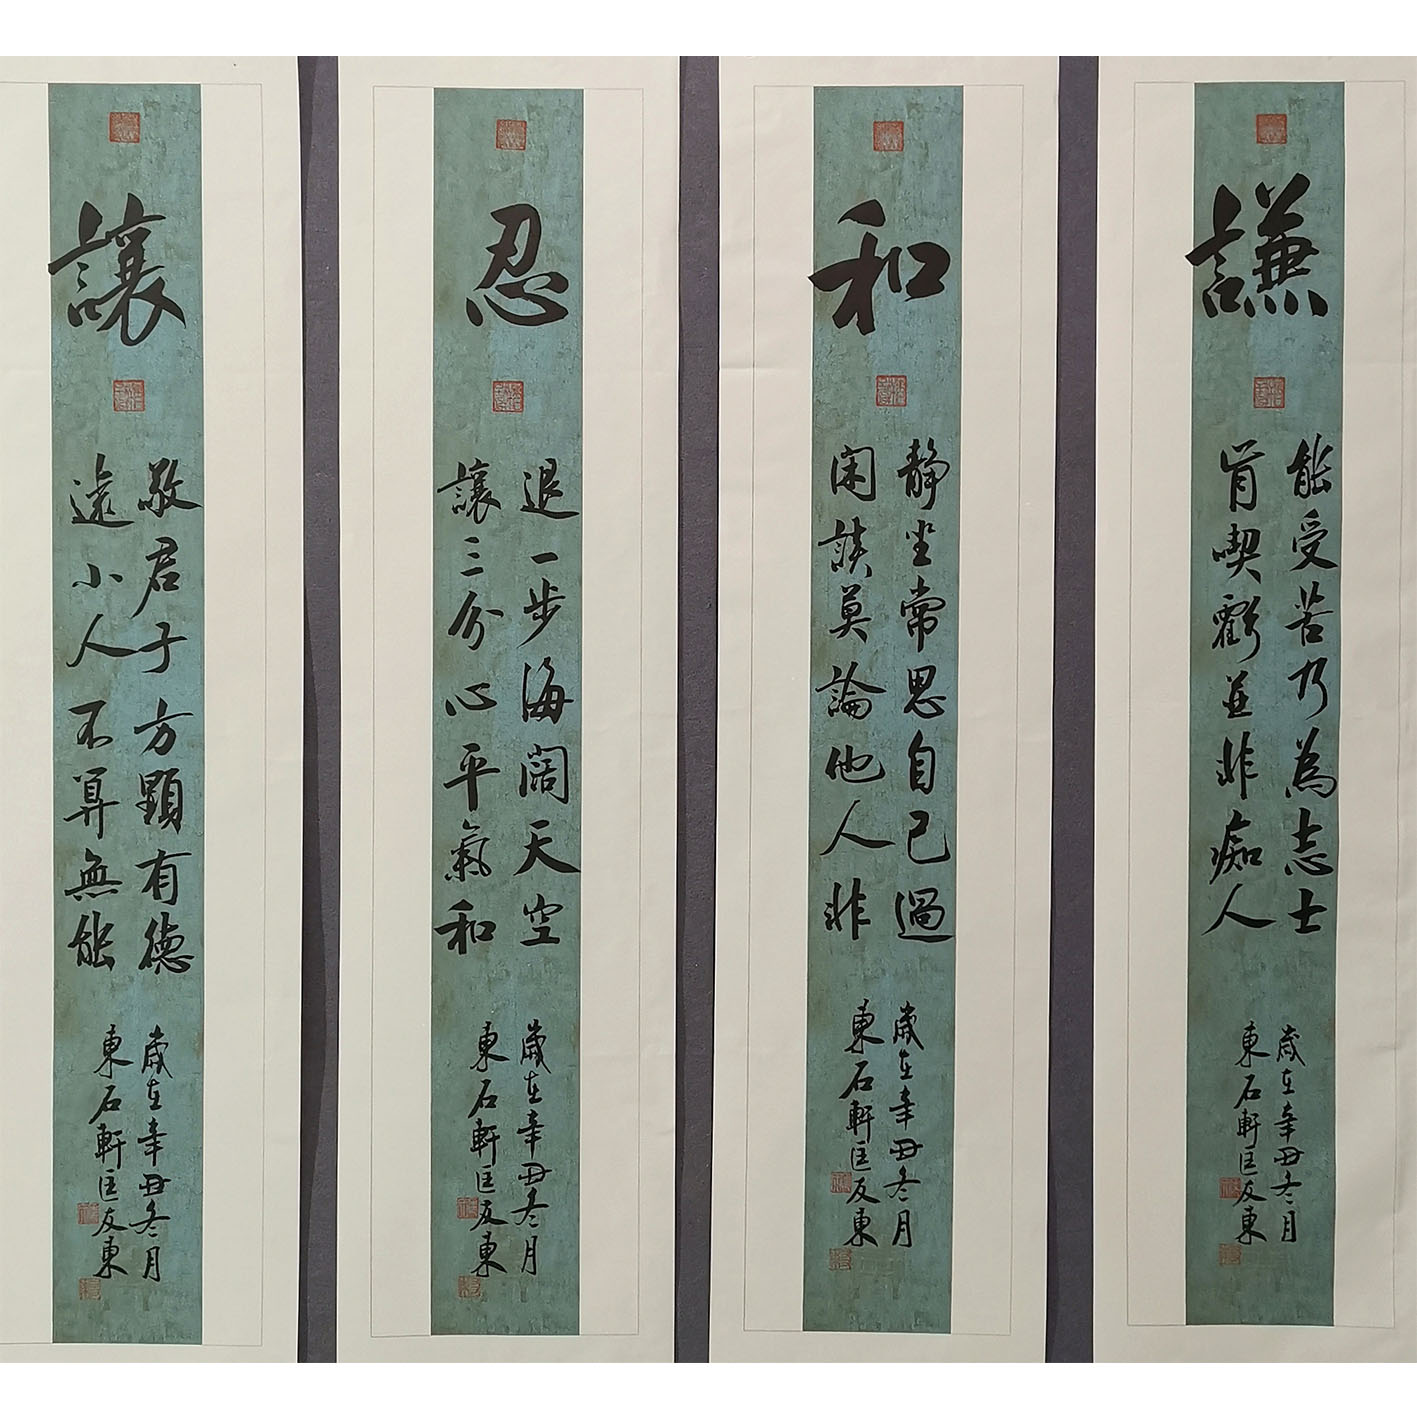 謙
能受苦乃為志士
肯喫虧並非痴人
歲在辛丑冬月
東石軒匡友東
和
靜坐常思自己過
閑談莫論他人非
歲在辛丑冬月
東石軒匡友東
忍
退一步海闊天空
讓三分心平氣和
歲在辛丑冬月
東石軒匡友東
讓
敬君子方顯有德
遠小人不算無能
歲在辛丑冬月
東石軒匡友東